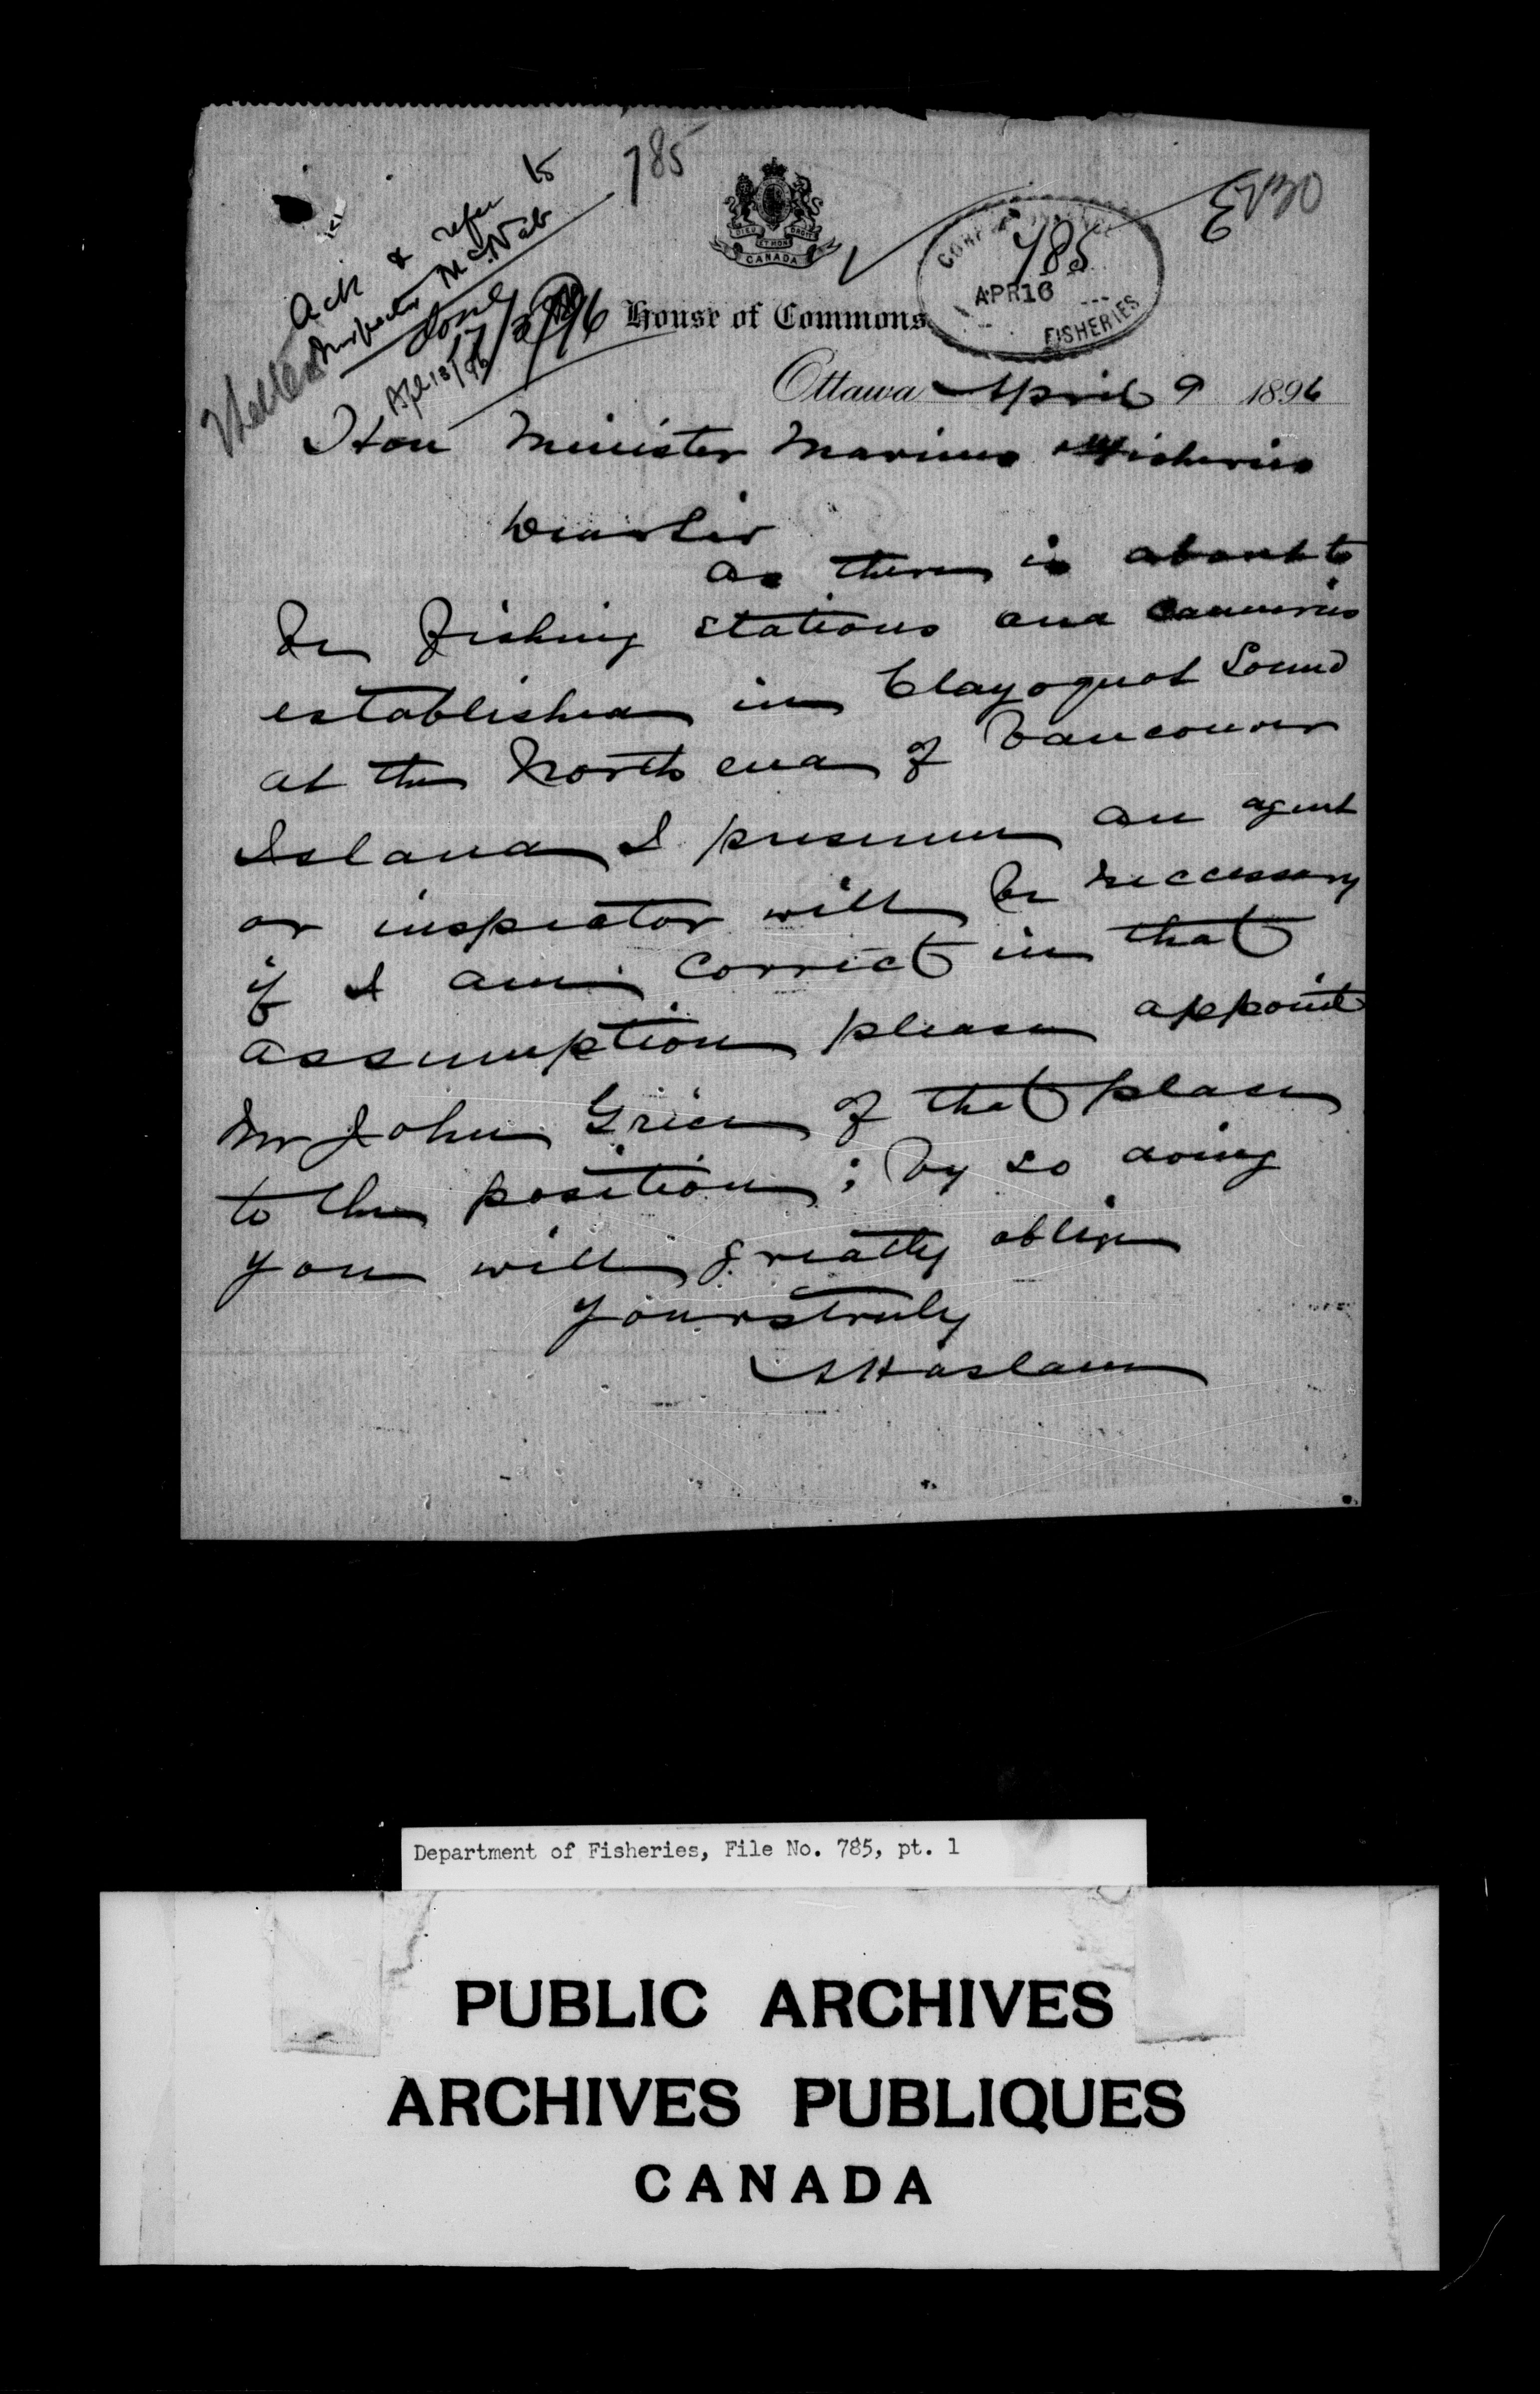 785
Ack & refer to
Inspector McNab
Done
17/3/96
Apl 13/96
DIEU ET MON DROIT
CANADA
House of Commons
785
APR 16
FISHERIES
Ottawa April 9 1896
Hon Minister Marine & Fisheries
Dear Sir
as there is about to
be fishing stations and canneries
established in Clayoquot Sound
at the North end of Vancouver
Island I presume an agent
or inspector will be neccessary
if I am correct in that
assumption please appoint
Mr John Grice of that place
to the position; by so doing
you will greatly oblige
yours truly
A Haslam
Department of Fisheries, File No. 785, pt. 1
PUBLIC ARCHIVES
ARCHIVES PUBLIQUES
CANADA